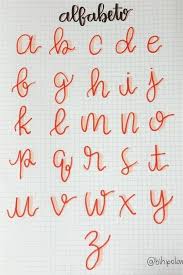 alfabeto
a b c d e
f g h i j
k l m n o
p q r s t
u v w x y
z
@bihpolan